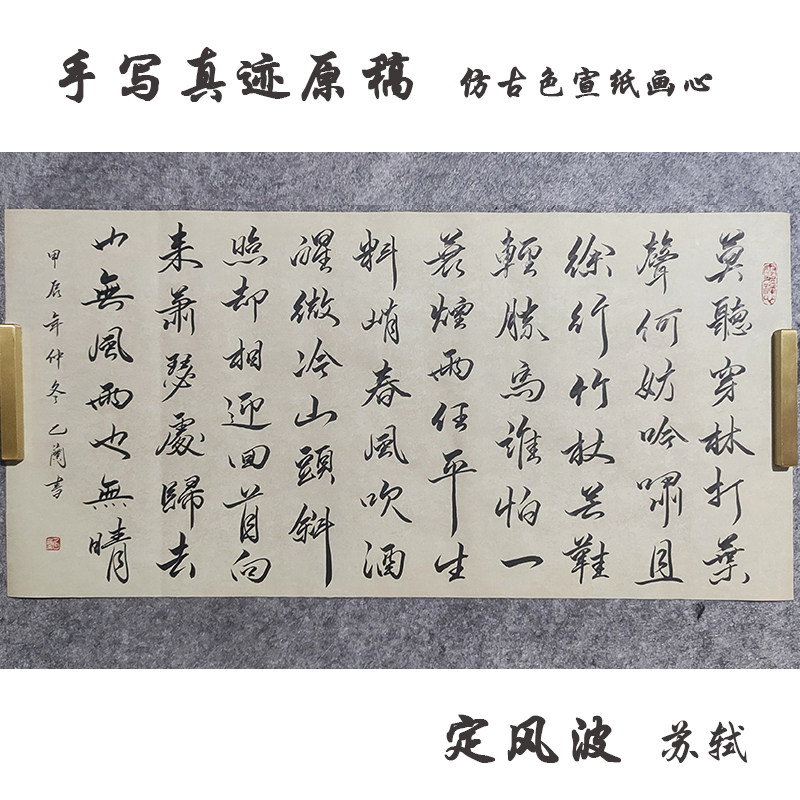 手写真迹原稿 仿古色宣纸画心
莫聽穿林打葉
聲何妨吟嘯且
徐行竹杖芒鞋
輕勝馬誰怕一
蓑煙雨任平生
料峭春風吹酒
醒微冷山頭斜
照却相迎回首向
来蕭瑟處歸去
也無風雨也無晴
甲辰年仲冬乙蘭書
定风波 苏轼